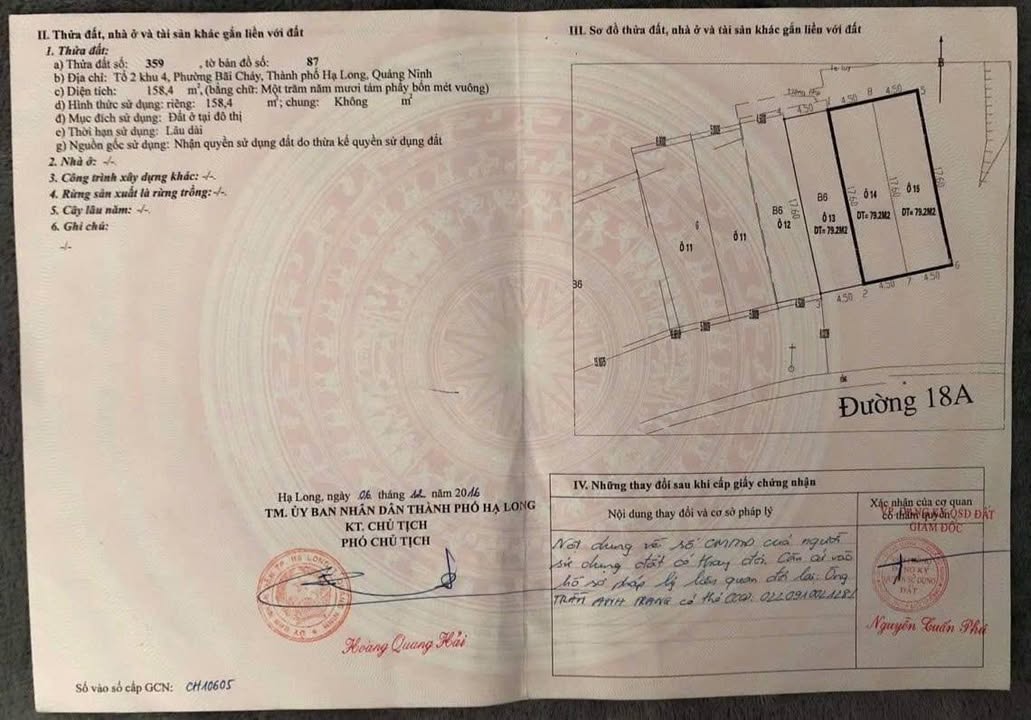 II. Thửa đất, nhà ở và tài sản khác gắn liền với đất
1. Thửa đất:
a) Thửa đất số: 359 , tờ bản đồ số: 87
b) Địa chỉ: Tổ 2 khu 4, Phường Bãi Cháy, Thành phố Hạ Long, Quảng Ninh
c) Diện tích: 158,4 m², (bằng chữ: Một trăm năm mươi tám phẩy bốn mét vuông)
d) Hình thức sử dụng: riêng: 158,4 m²; chung: Không m²
đ) Mục đích sử dụng: Đất ở tại đô thị
e) Thời hạn sử dụng: Lâu dài
g) Nguồn gốc sử dụng: Nhận quyền sử dụng đất do thừa kế quyền sử dụng đất
2. Nhà ở: -/-.
3. Công trình xây dựng khác: -/-.
4. Rừng sản xuất là rừng trồng: -/-.
5. Cây lâu năm: -/-.
6. Ghi chú:
-/-
Hạ Long, ngày 06 tháng 12 năm 2016
TM. ỦY BAN NHÂN DÂN THÀNH PHỐ HẠ LONG
KT. CHỦ TỊCH
PHÓ CHỦ TỊCH
Hoàng Quang Hải
Số vào sổ cấp GCN: CH10605
III. Sơ đồ thửa đất, nhà ở và tài sản khác gắn liền với đất
B
4,50 1 4,50 8 4,50 5
17,60 17,60 17,60 17,60
Ô 11
6
Ô 11
B6
Ô 12
B6
Ô 13
DT= 79.2M2
Ô 14
DT= 79.2M2
Ô 15
DT= 79.2M2
B6
3 4,50 2 4,50 7 4,50 6
Đường 18A
IV. Những thay đổi sau khi cấp giấy chứng nhận
Nội dung thay đổi và cơ sở pháp lý
Xác nhận của cơ quan
có thẩm quyền
VP. ĐĂNG KÝ QSD ĐẤT
GIÁM ĐỐC
Nội dung về số CMND của người
sử dụng đất có thay đổi. Căn cứ vào
hồ sơ pháp lý liên quan đổi lại: Ông
TRẦN ANH TRANG có thẻ CCCD:
Nguyễn Tuấn Phú